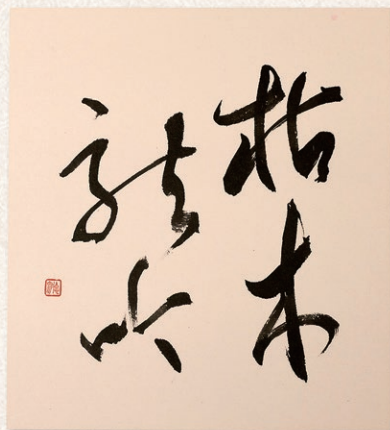 枯木
龍吟